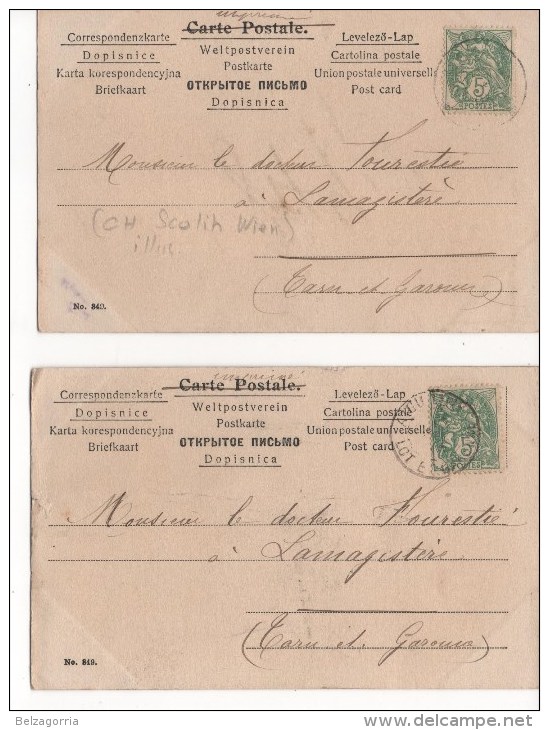 imprimé
Carte Postale.
Correspondenzkarte
Dopisnice
Karta korespondencyjna
Briefkaart
Weltpostverein
Postkarte
ОТКРЫТОЕ ПИСЬМО
Dopisnica
Levelező-Lap
Cartolina postale
Union postale universelle
Post card
5c
POSTES
Monsieur le docteur Fourestié
à Lamagistère
(CH Scolik Wien)
illus
(Tarn et Garonne)
No. 849.
imprimé
Carte Postale.
Correspondenzkarte
Dopisnice
Karta korespondencyjna
Briefkaart
Weltpostverein
Postkarte
ОТКРЫТОЕ ПИСЬМО
Dopisnica
Levelező-Lap
Cartolina postale
Union postale universelle
Post card
5c
POSTES
LOT ET
Monsieur le docteur Fourestié
à Lamagistère
(Tarn et Garonne)
No. 849.
Belzagorria
delcampe.net